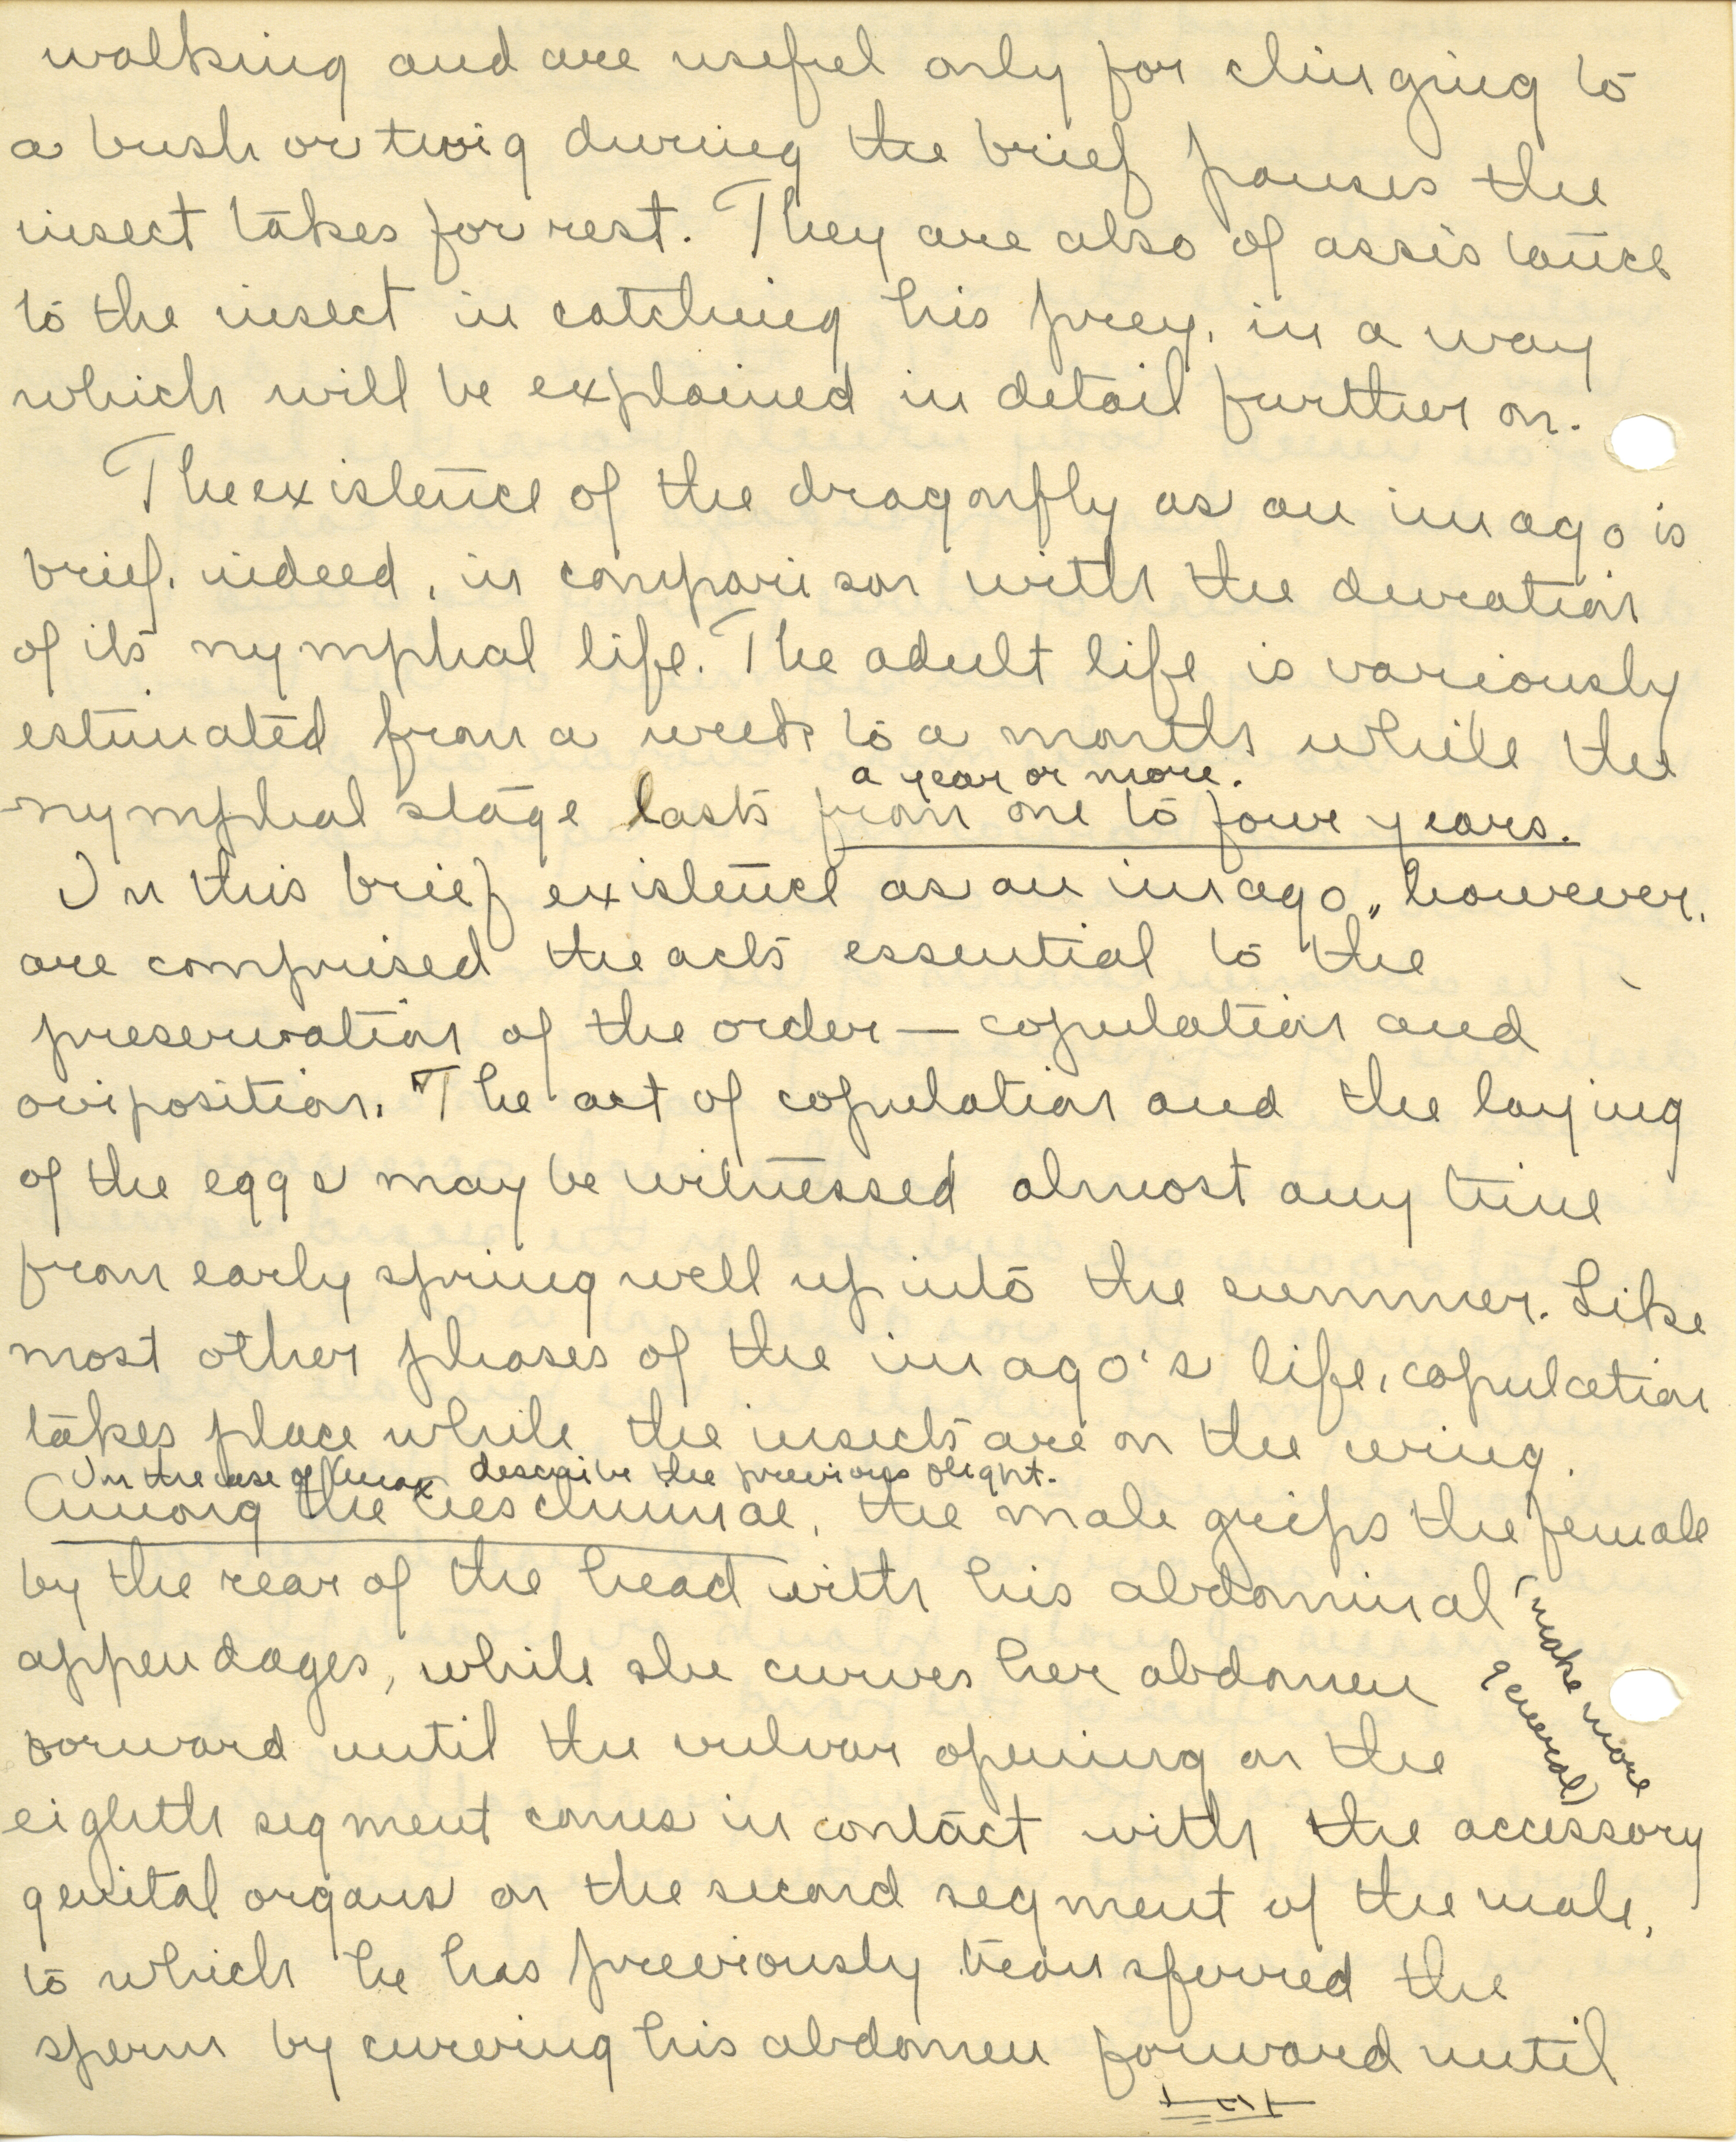 walking and are useful only for clinging to
a bush or twig during the brief pauses the
insect takes for rest. They are also of assistance
to the insect in catching his prey, in a way
which will be explained in detail further on.
The existence of the dragonfly as an imago is
brief, indeed, in comparison with the duration
of its nymphal life. The adult life is variously
estimated from a week to a month while the
a year or more.
nymphal stage lasts from one to four years.
In this brief existence as an imago, however,
are comprised the acts essential to the
preservation of the order — copulation and
oviposition. The act of copulation and the laying
of the eggs may be witnessed almost any time
from early spring well up into the summer. Like
most other phases of the imago's life, copulation
takes place while the insects are on the wing.
In the case of Anax describe the previous flight.
Among the Aeschninae, the male grips the female
by the rear of the head with his abdominal
appendages, while she curves her abdomen
(make more
general)
forward until the vulvar opening on the
eighth segment comes in contact with the accessory
genital organs on the second segment of the male,
to which he has previously transferred the
sperm by curving his abdomen forward until